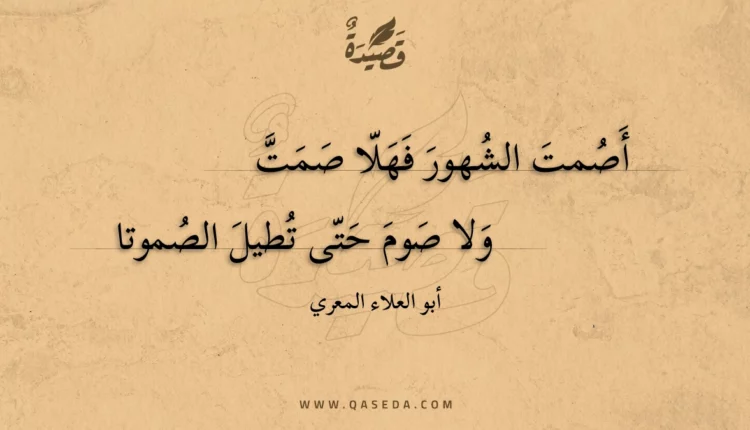 قَصِيدَةٌ
أَصُمتَ الشُهورَ فَهَلّا صَمَتَّ
وَلا صَومَ حَتّى تُطيلَ الصُموتا
أبو العلاء المعري
WWW.QASEDA.COM